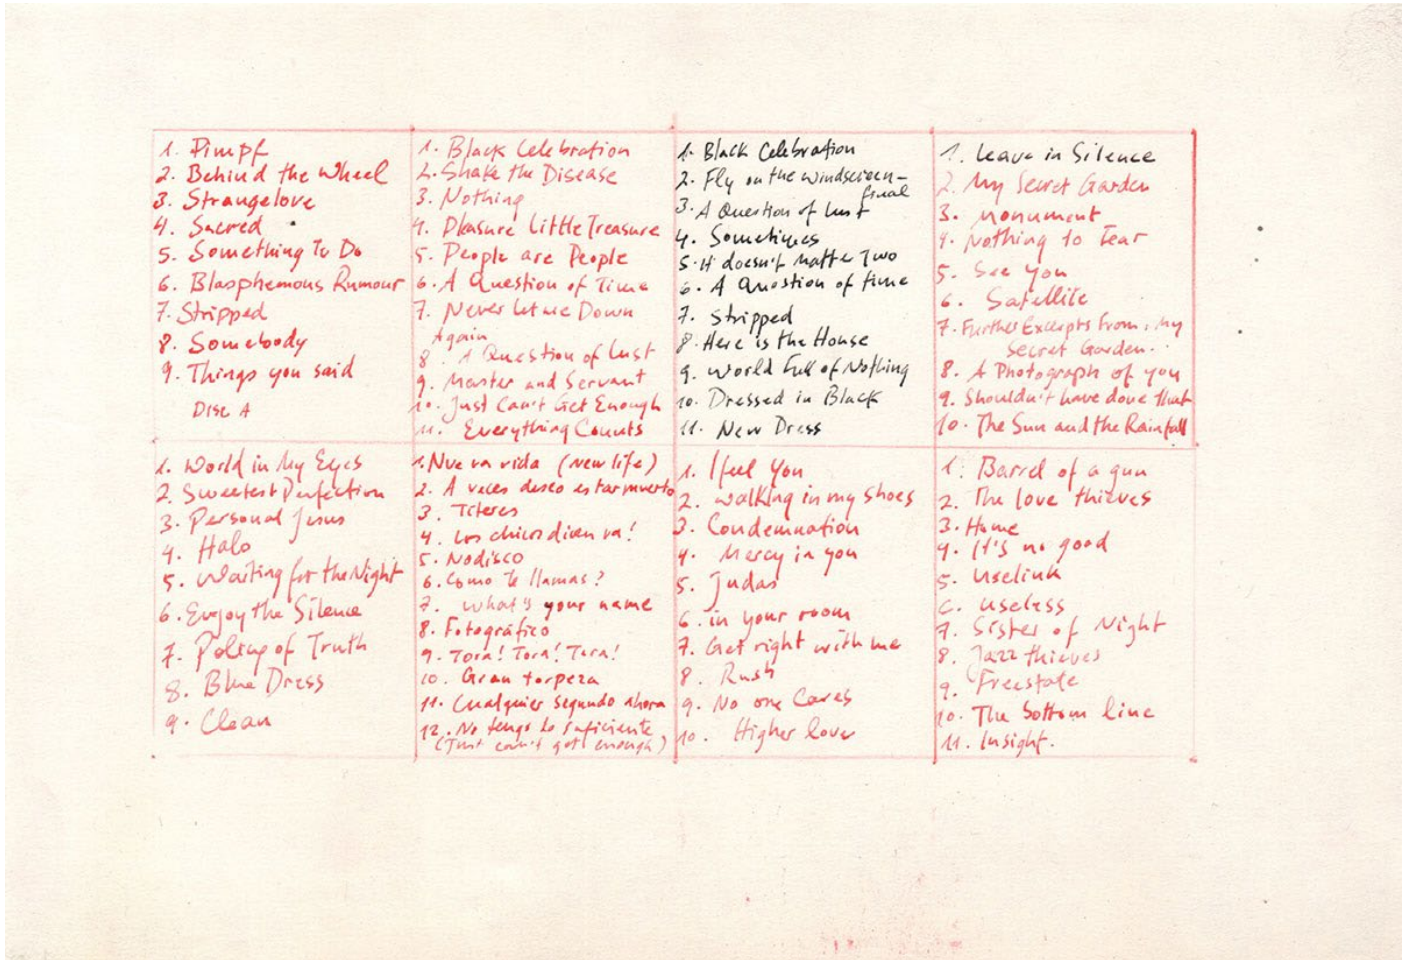 1. Pimpf
2. Behind the Wheel
3. Strangelove
4. Sacred
5. Something To Do
6. Blasphemous Rumour
7. Stripped
8. Somebody
9. Things you said
Disc A
1. Black Celebration
2. Shake the Disease
3. Nothing
4. Pleasure Little Treasure
5. People are People
6. A Question of Time
7. Never let me Down
Again
8. A Question of Lust
9. Master and Servant
10. Just Can't Get Enough
11. Everything Counts
1. Black Celebration
2. Fly on the windscreen-
final
3. A Question of Lust
4. Sometimes
5. It doesn't matter Two
6. A Question of time
7. Stripped
8. Here is the House
9. World Full of Nothing
10. Dressed in Black
11. New Dress
1. Leave in Silence
2. My Secret Garden
3. Monument
4. Nothing to Fear
5. See You
6. Satellite
7. Further Excerpts From: My
Secret Garden.
8. A Photograph of you
9. Shouldn't have done that
10. The Sun and the Rainfall
1. World in My Eyes
2. Sweetest Perfection
3. Personal Jesus
4. Halo
5. Waiting for the Night
6. Enjoy the Silence
7. Policy of Truth
8. Blue Dress
9. Clean
1. Nueva vida (new life)
2. A veces deseo estar muerto
3. Titeres
4. Los chicos dicen va!
5. Nodisco
6. Como te llamas?
7. What's your name
8. Fotográfico
9. Tora! Tora! Tora!
10. Gran torpeza
11. Cualquier segundo ahora
12. No tengo lo suficiente
(Just can't get enough)
1. I feel You
2. walking in my shoes
3. Condemnation
4. Mercy in you
5. Judas
6. in your room
7. Get right with me
8. Rush
9. No one Cares
10. Higher love
1. Barrel of a gun
2. The love thieves
3. Home
4. It's no good
5. Uselink
6. useless
7. Sister of Night
8. Jazz thieves
9. Freestate
10. The bottom line
11. Insight.